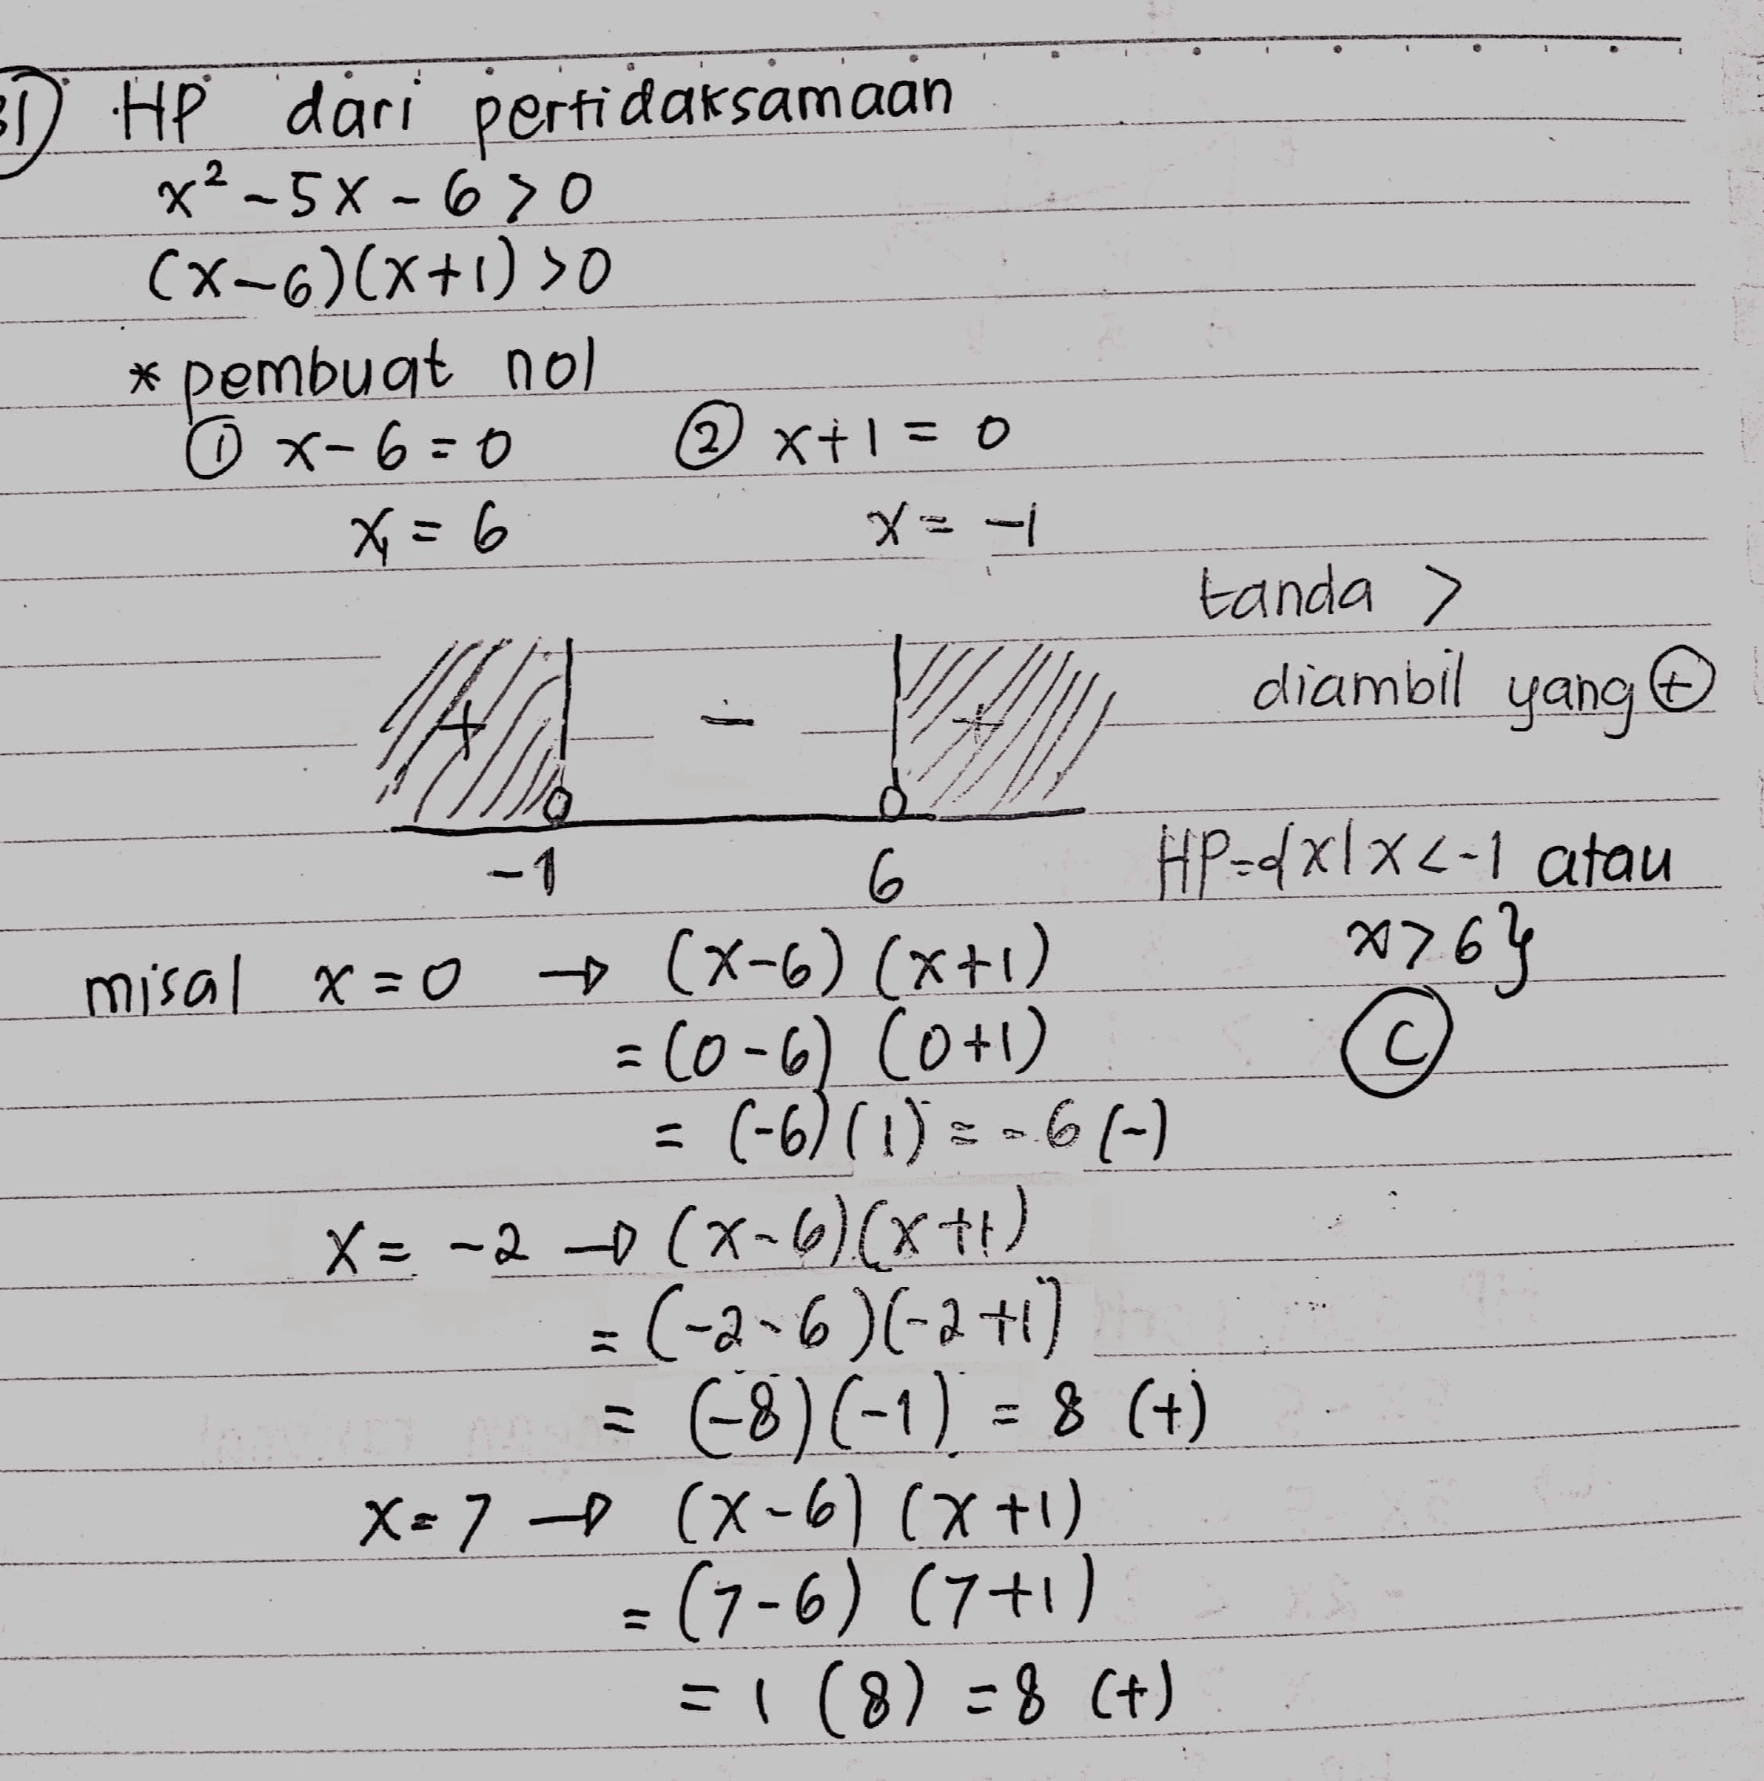 31) HP dari pertidaksamaan
x² - 5x - 6 > 0
(x-6)(x+1) > 0
* pembuat nol
① x - 6 = 0 ② x+1 = 0
x₁ = 6 x = -1
tanda >
+ - + diambil yang ⊕
-1 6 HP = {x | x < -1 atau
x > 6}
misal x = 0 → (x-6) (x+1)
= (0-6) (0+1) Ⓒ
= (-6) (1) = -6 (-)
x = -2 → (x-6)(x+1)
= (-2-6)(-2+1)
= (-8)(-1) = 8 (+)
x = 7 → (x-6) (x+1)
= (7-6) (7+1)
= 1 (8) = 8 (+)